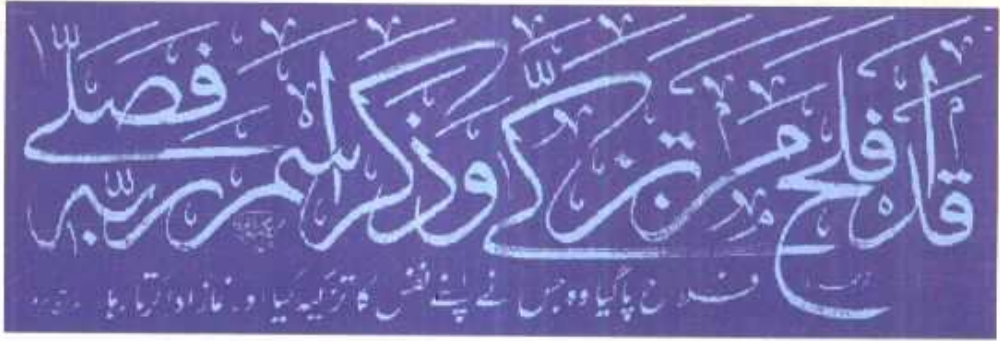 قَدْ أَفْلَحَ مَنْ تَزَكَّىٰ وَذَكَرَ اسْمَ رَبِّهِ فَصَلَّىٰ
فلاح پا گیا وہ جس نے اپنے نفس کا تزکیہ کیا اور نماز ادا کرتا رہا